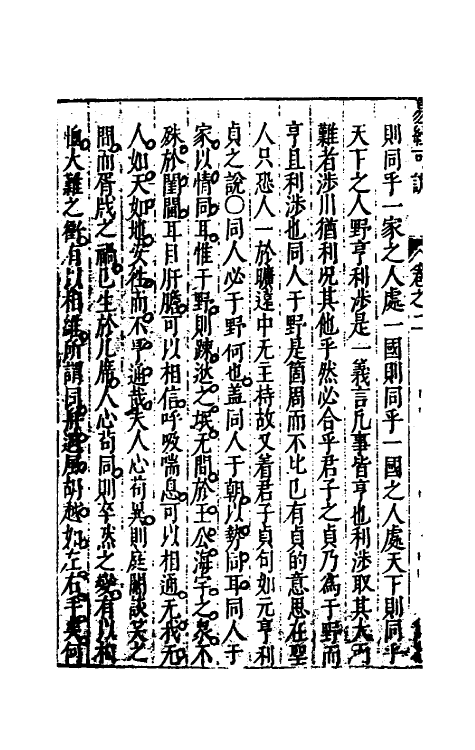 則同乎一家之人處一國則同乎一國之人處天下則同乎
天下之人野亨利涉是一義言凡事皆亨也利涉取其大
難者涉川猶利况其他乎然必合乎君子之貞乃爲于野而
亨且利涉也同人于野是箇周而不比已有貞的意思在聖
人只恐人一於曠遠中无主持故又着君子貞句如元亨利
貞之說○同人必于野何也蓋同人于朝以勢同耳同人于
家以情同耳惟于野則踈逖之氓无間於王公海宇之衆不
殊於閨闥耳目肝膽可以相信呼吸喘息可以相通无我无
人如天如地安往而不亨通哉夫人心苟異則庭闈談笑之
間而胥戕之禍已生於几席人心苟同則卒然之變有以相
大難之有以相所謂同風胡越如左右手矣何
易經可說
卷之二